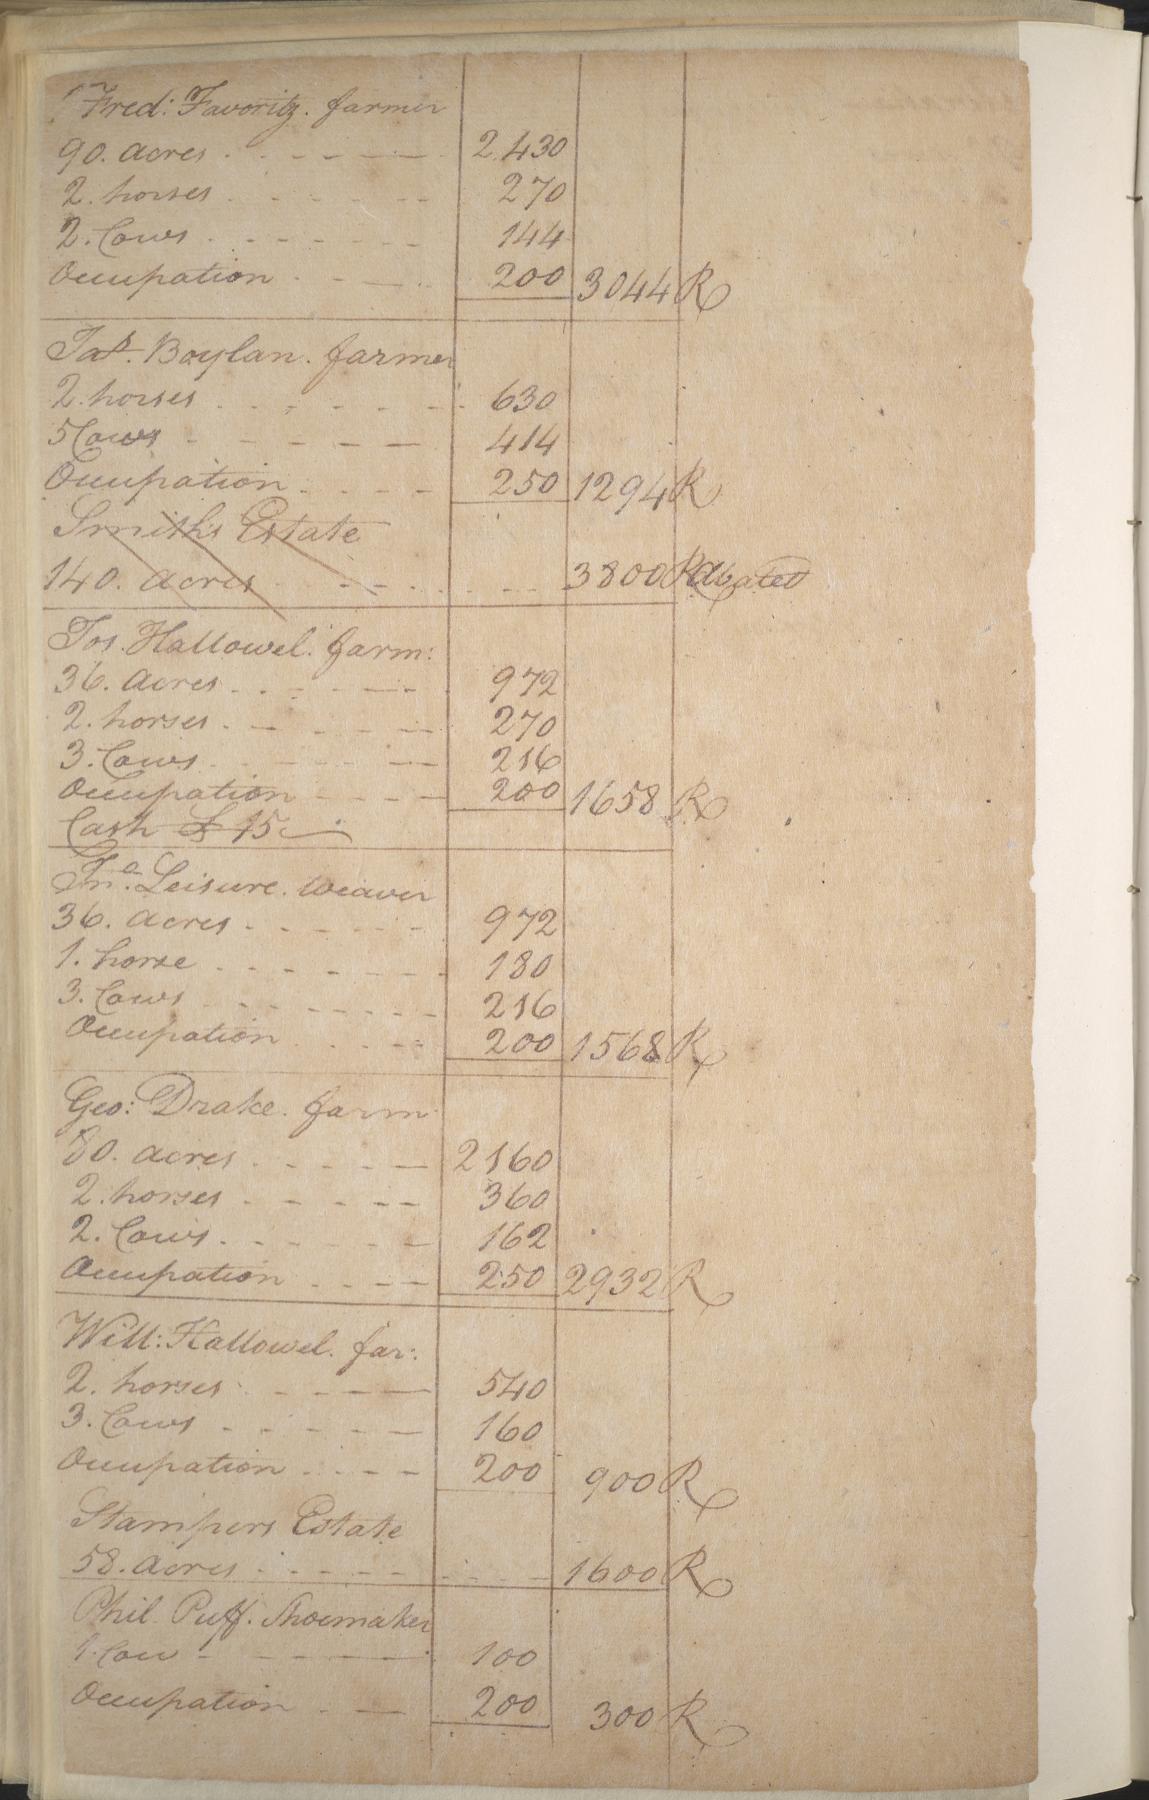 Fred: Favoritz. farmer
90. acres . . - - - — 2.430
2. horses . - - - - - 270
2. Cows . - - - - - - 144
Occupation . - — . 200 3044 R
Jas. Boylan. farmer
2. horses . . - . - - - . 630
5 Cows - - - - — — 414
Occupation . . - - 250 1294 R
Smith's Estate
140. acres . - - . . . . 3800 R abated
Jos. Hallowel. farm:
36. acres . . - - - - 972
2. horses . — - - — 270
3. Cows . - - - — — 216
Occupation - - - — 200 1658 R
Cash £ 15
Jno. Leisure. weaver
36. acres . - - - - - 972
1. horse . . - - - - - . 180
3. Cows . . - - - - - - 216
Occupation . . - - 200 1568 R
Geo: Drake. farm
80. acres . - - - — 2160
2. horses . - - - - - 360
2. Cows . - - - - — 162
Occupation . - - — 250 2932 R
Will: Hallowel. far:
2. horses . - - - — 540
3. Cows . - - - - — 160
Occupation . . - - 200 900 R
Stampers Estate
58. acres . - - - - - . . - - 1600 R
Phil. Puff. Shoemaker
1. Cow - - - - — 100
Occupation . — 200 300 R